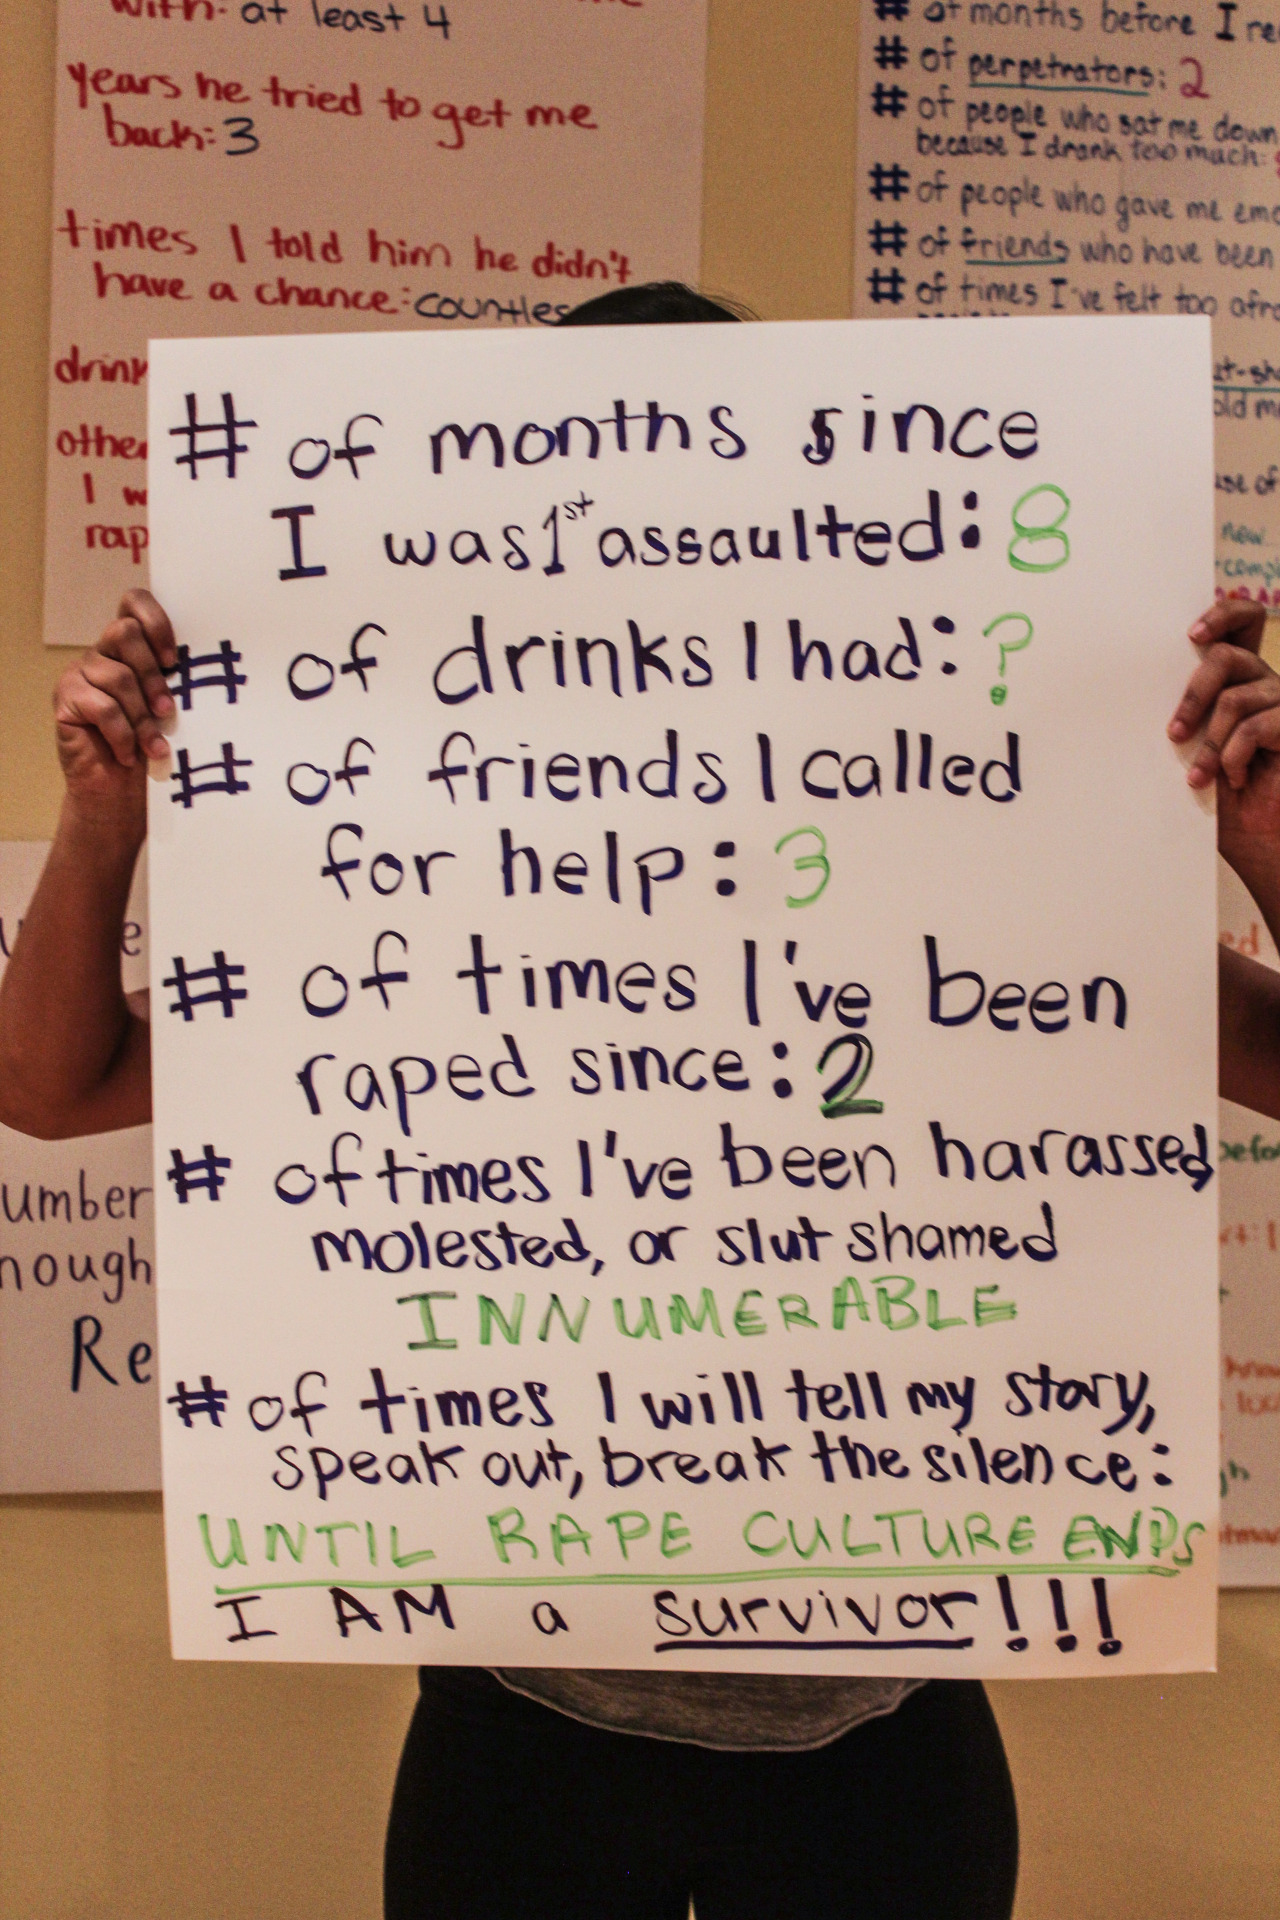 with: at least 4
years he tried to get me
back: 3
times I told him he didn't
have a chance: countles
drink
other
I w
rap
# of months before I re
# of perpetrators: 2
# of people who sat me down
because I drank too much:
# of people who gave me emo
# of friends who have been
# of times I've felt too afra
old m
use of
new
# of months since
I was 1st assaulted: 8
# of drinks I had: ?
# of friends I called
for help: 3
# of times I've been
raped since: 2
# of times I've been harassed,
molested, or slut shamed
INNUMERABLE
# of times I will tell my story,
speak out, break the silence:
UNTIL RAPE CULTURE ENDS
I AM a survivor!!!
umber
nough
Re